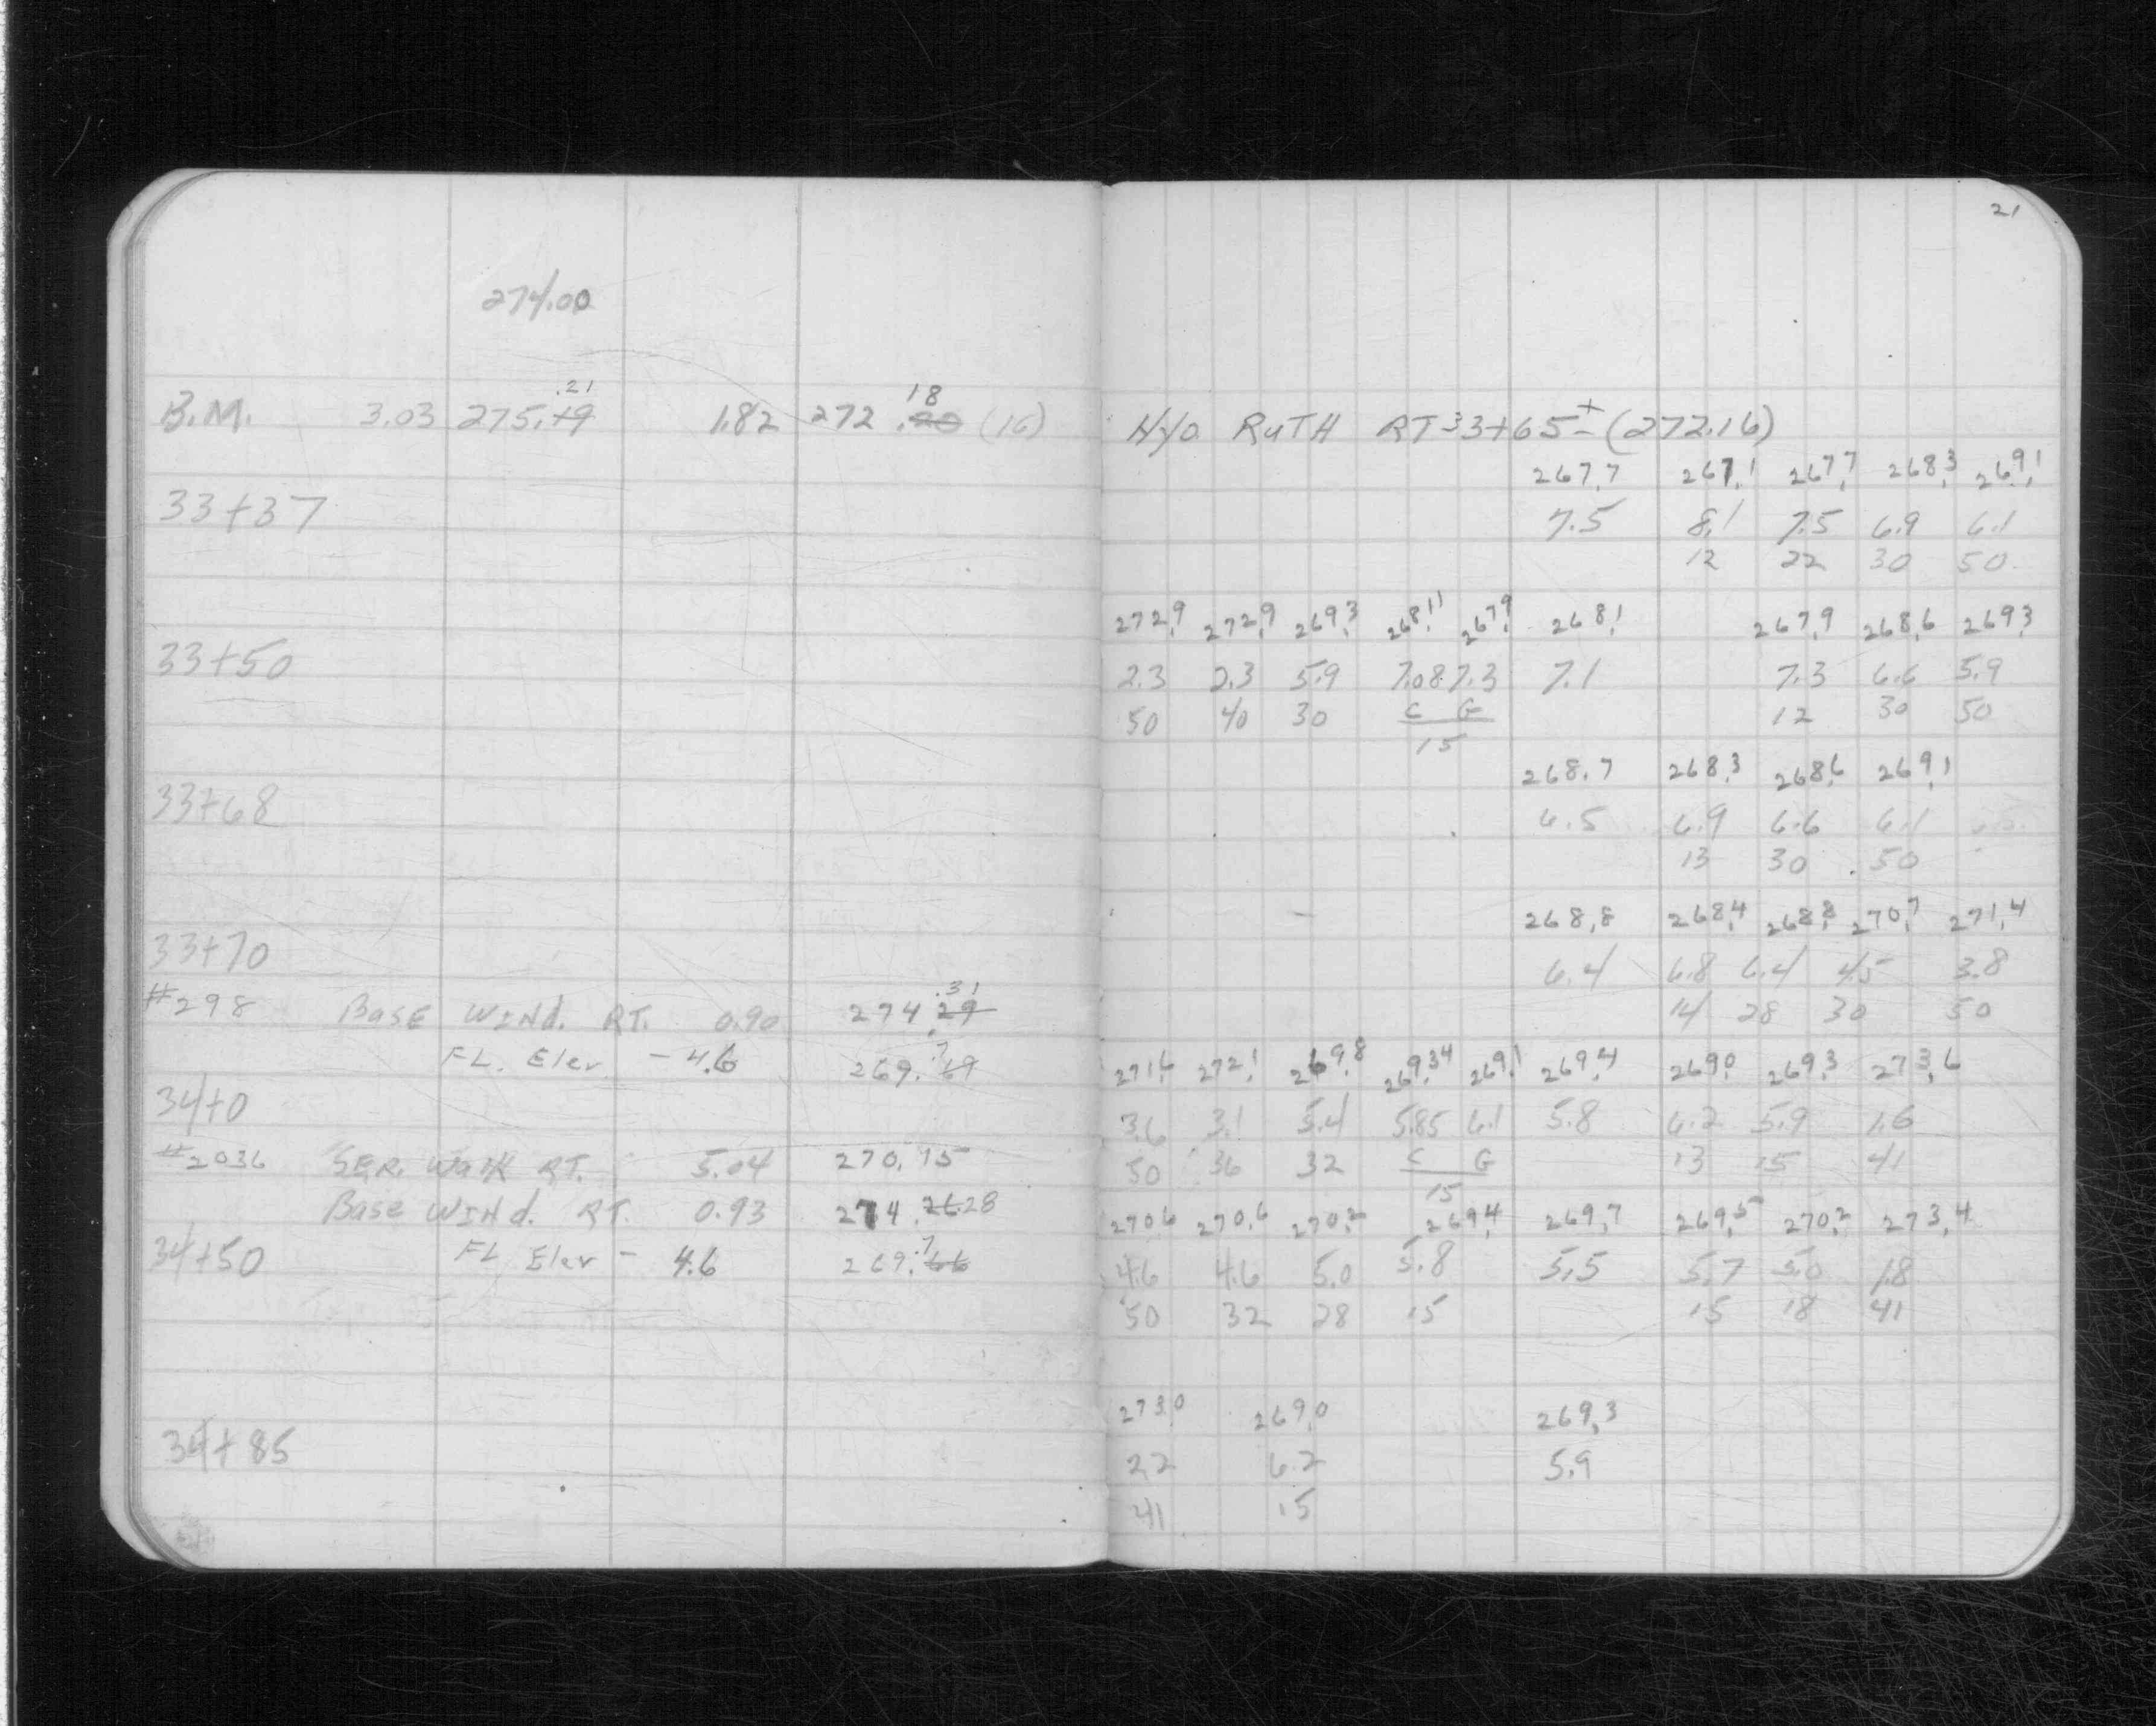 21
274.00
.21 18
B.M. 3.03 275.19 1.82 272.20 (16) Hyd RUTH RT 33+65± (272.16)
267.7 267.1 267.7 268.3 269.1
33+37 7.5 8.1 7.5 6.9 6.1
12 22 30 50
272.9 272.9 269.3 268.11 267.9 268.1 267.9 268.6 269.3
33+50 2.3 2.3 5.9 7.08 7.3 7.1 7.3 6.6 5.9
50 40 30 C G 12 30 50
15
268.7 268.3 268.6 269.1
33+68 6.5 6.9 6.6 6.1
13 30 50
268.8 268.4 268.8 270.7 271.4
33+70 6.4 6.8 6.4 4.5 3.8
.31
#298 BASE WINd. RT. 0.90 274.29 14 28 30 50
FL. Elev - 4.6 269.69 .7 271.6 272.1 269.8 269.34 269.1 269.4 269.0 269.3 273.6
34+0 3.6 3.1 5.4 5.85 6.1 5.8 6.2 5.9 1.6
#2036 SER. Walk RT. 5.04 270.15 50 36 32 C G 13 15 41
15
Base WINd. RT. 0.93 274.26 28 270.6 270.6 270.2 269.4 269.7 269.5 270.2 273.4
34+50 FL Elev - 4.6 269.66 .7 4.6 4.6 5.0 5.8 5.5 5.7 5.0 1.8
50 32 28 15 15 18 41
273.0 269.0 269.3
34+85 2.2 6.2 5.9
41 15